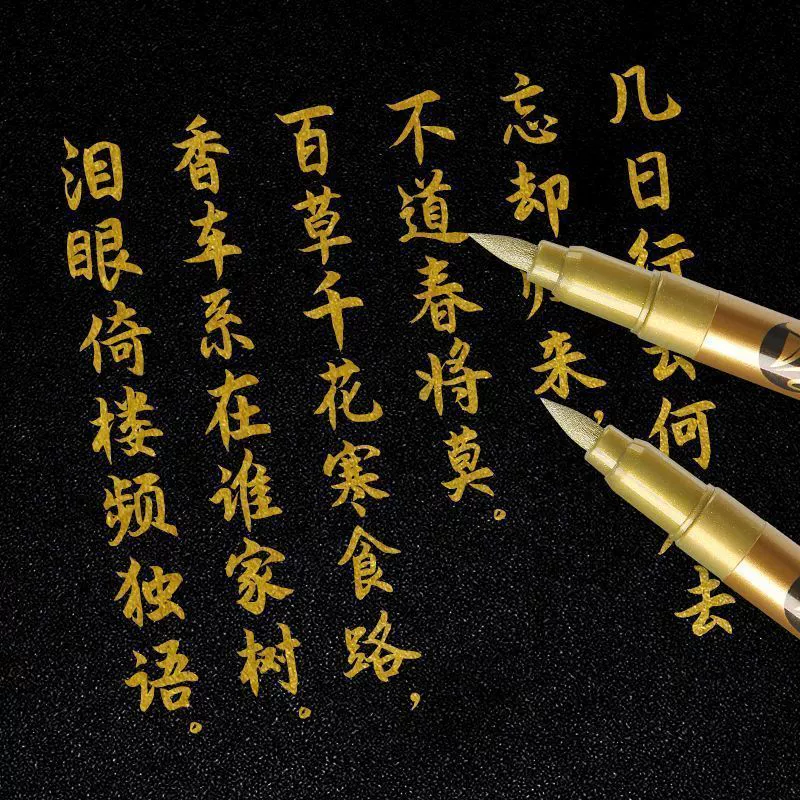 几日行何去
忘却来，
不道春将莫。
百草千花寒食路，
香车系在谁家树。
泪眼倚楼频独语。